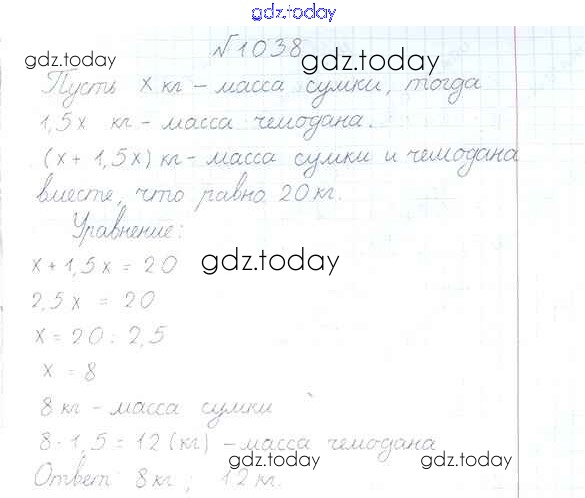 gdz.today
№1038
gdz.today gdz.today
Пусть x кг - масса сумки, тогда
1,5x кг - масса чемодана.
(x + 1,5x) кг - масса сумки и чемодана
вместе, что равно 20 кг.
Уравнение:
x + 1,5x = 20
gdz.today
2,5x = 20
x = 20 : 2,5
x = 8
8 кг - масса сумки
8 · 1,5 = 12 (кг) - масса чемодана
gdz.today gdz.today
Ответ: 8 кг ; 12 кг.